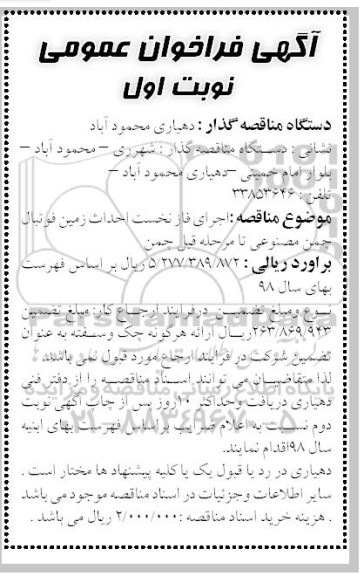 آگهی فراخوان عمومی
نوبت اول
دستگاه مناقصه گذار : دهیاری محمود آباد
نشانی : دستگاه مناقصه گذار : شهرری – محمود آباد –
بلوار امام خمینی –دهیاری محمود آباد –
تلفن : ۳۳۸۵۳۶۴۶
موضوع مناقصه :اجرای فاز نخست احداث زمین فوتبال
چمن مصنوعی تا مرحله قبل چمن
برآورد ریالی : ۵/۲۷۷/۳۸۹/۸۷۲ ریال بر اساس فهرست
بهای سال ۹۸
نوع ومبلغ تضمین درفرایند ارجاع کار: مبلغ تضمین
۲۶۳/۸۶۹/۹۴۳ریال ارائه هرگونه چک وسفته به عنوان
تضمین شرکت در فرایند ارجاع مورد قبول نمی باشد .
لذا متقاضیان می توانند اسناد مناقصه را از دفتر فنی
دهیاری دریافت وحداکثر ۱۰روز پس از چاپ آگهی نوبت
دوم نسبت به اعلام ضرایب براساس فهرست بهای ابنیه
سال ۹۸اقدام نمایند.
دهیاری در رد یا قبول یک یا کلیه پیشنهاد ها مختار است .
سایر اطلاعات وجزئیات در اسناد مناقصه موجود می باشد
. هزینه خرید اسناد مناقصه :۲/۰۰۰/۰۰۰ ریال می باشد .